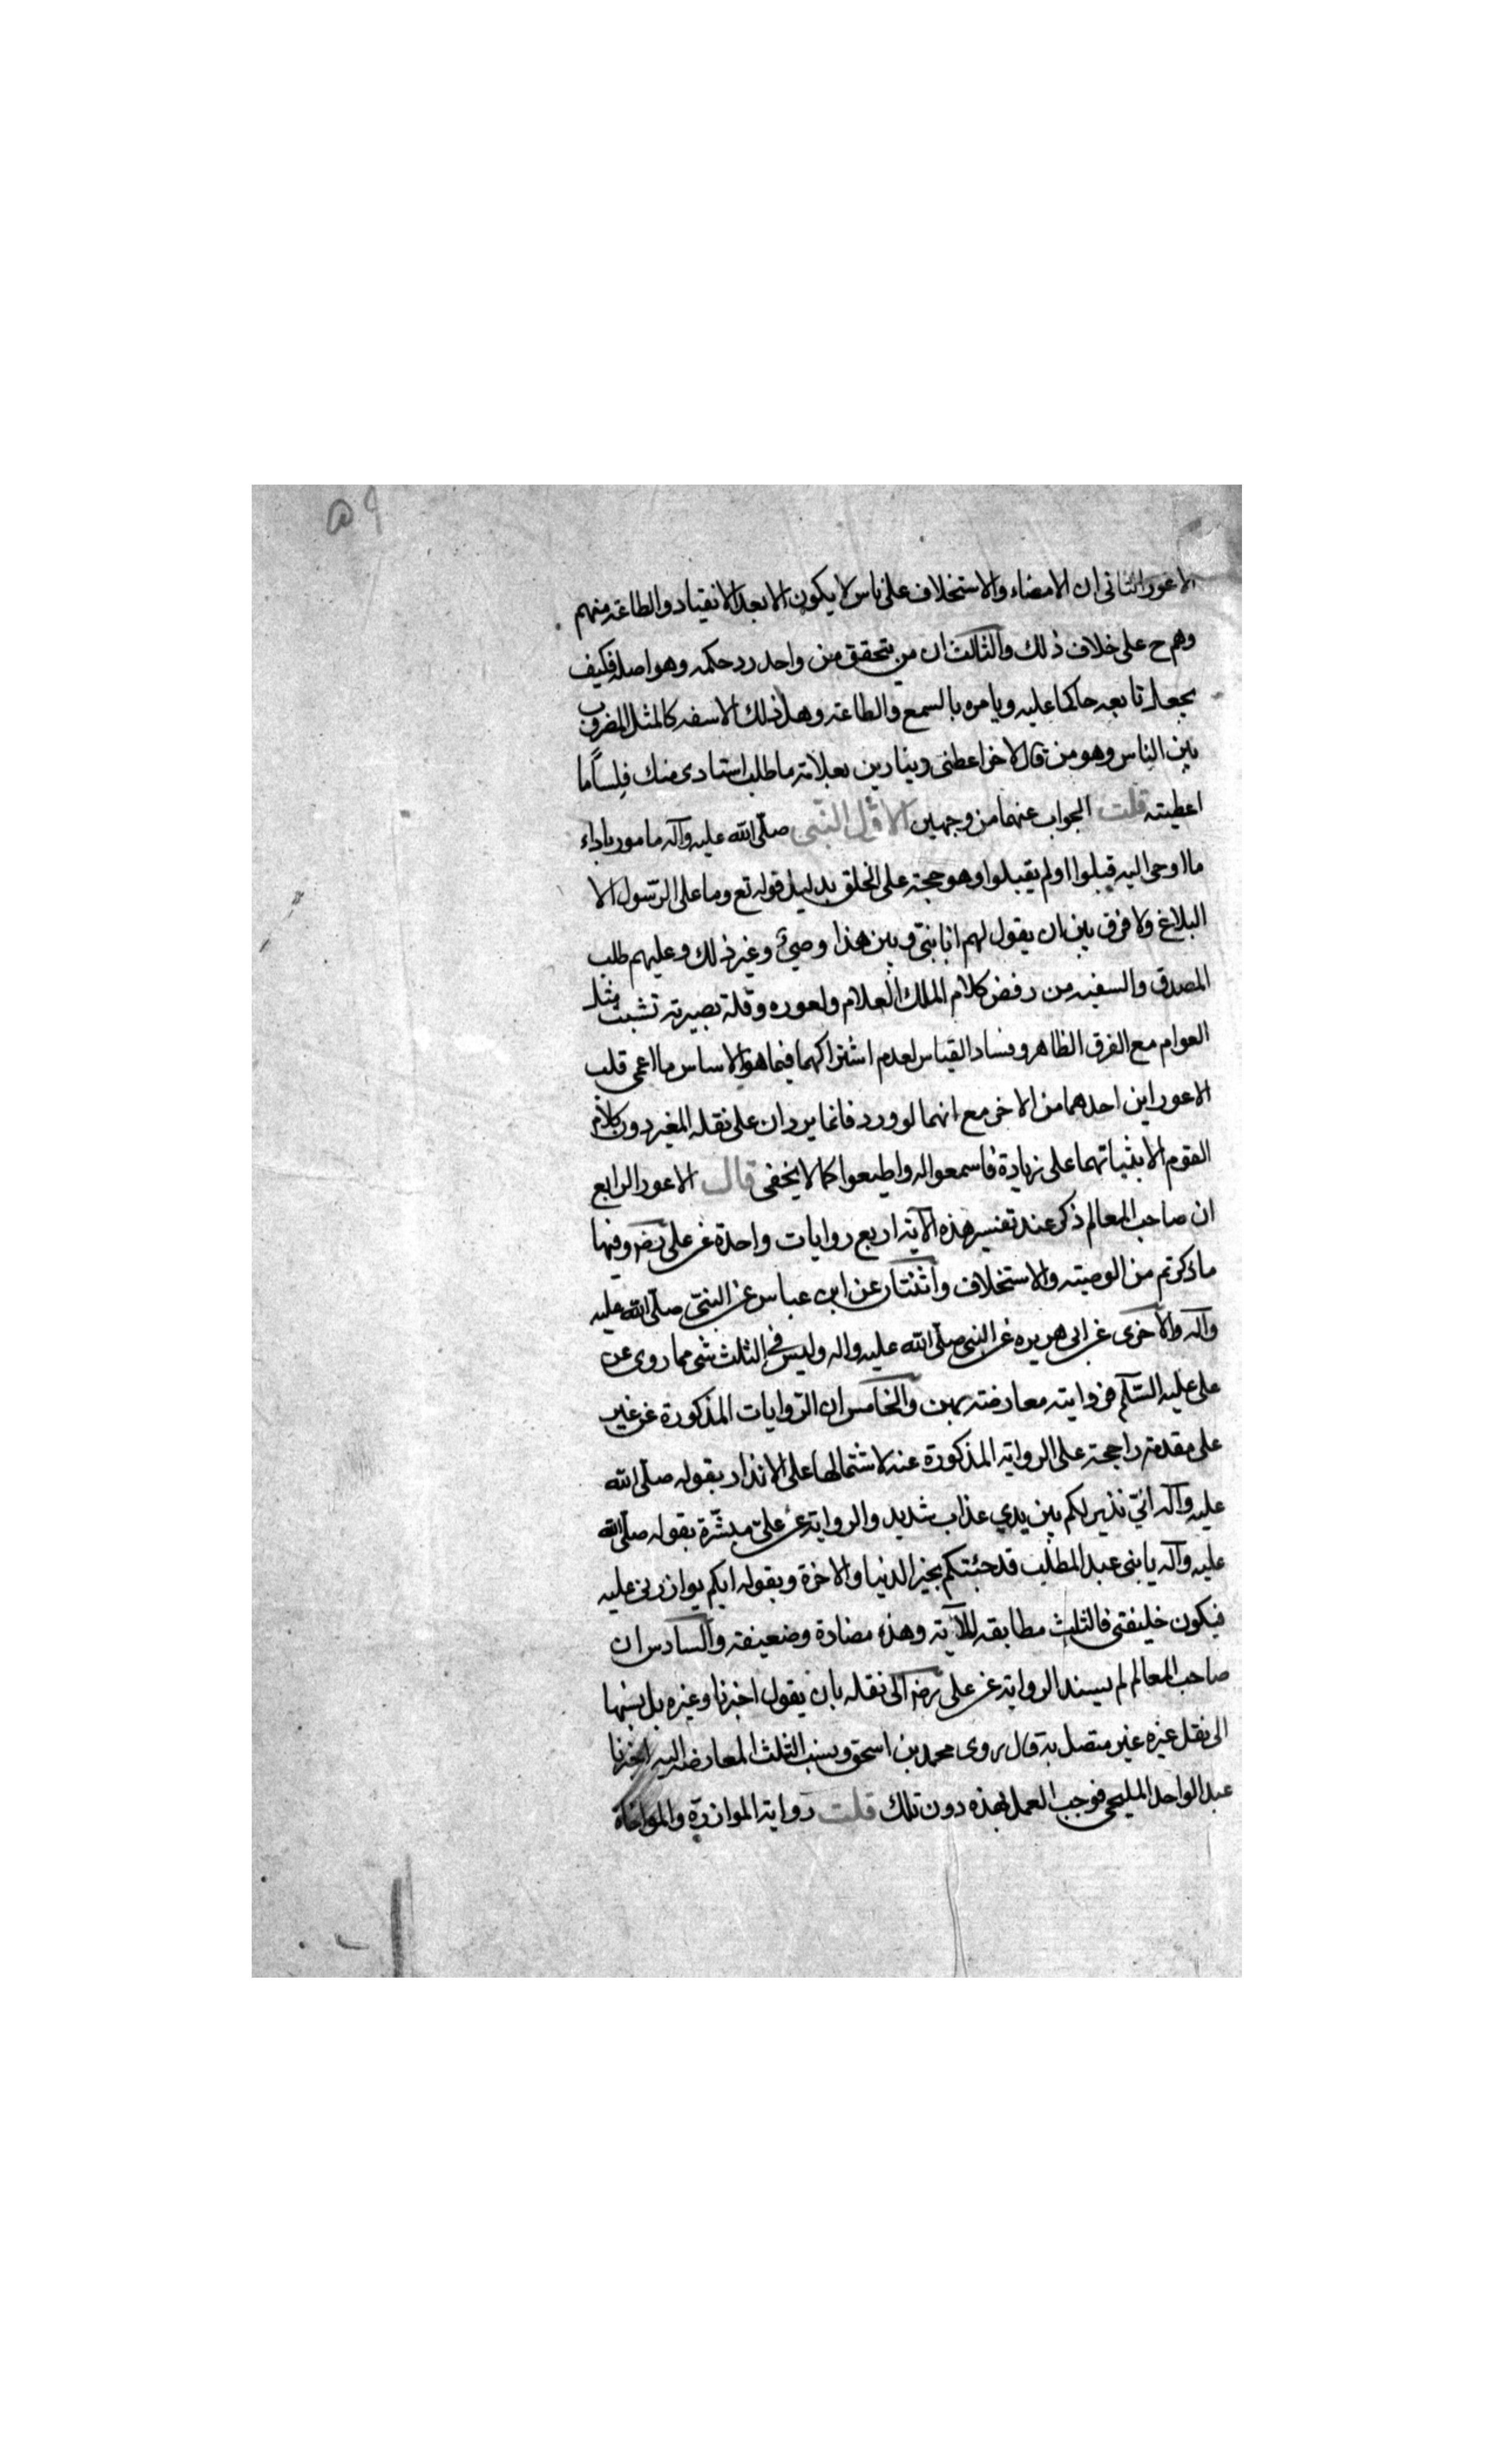 ٥٩
الاعور الثانى ان الامضاء والاستخلاف على ناس لا يكون الا بعد الانقياد والطاعة منهم
وهم ح على خلاف ذلك والثالث ان من يتحقق من واحد رد حكمه وهو اصله فكيف
يجعل تابعه حاكما عليه ويامره بالسمع والطاعة وهل ذلك الا سفه كالمثل المضروب
بين الناس وهو من قال لاخر اعطنى دينارين بعلامة ما طلب استادى منك فلسا ما
اعطيته قلت الجواب عنهما من وجهين الاول النبى صلّى الله عليه وآله مامور باداء
ما اوحى اليه قبلوا او لم يقبلوا وهو حجة على الخلق بدليل قوله تع وما على الرّسول الا
البلاغ ولا فرق بين ان يقول لهم انا نبىّ وبين هذا وصيّى وغير ذلك وعليهم طلب
المصدق والسفيه من رفض كلام الملك العلام ولعوره وقلة بصيرته تشبث بمثل
العوام مع الفرق الظاهر وفساد القياس لعدم اشتراكهما فيما هو الاساس ما اعمى قلب
الاعور اين احدهما من الاخر مع انهما لو ورد فانما يردان على نقله المغير دون كلام
القوم الا بثباتهما على زيادة فاسمعوا له واطيعوا كما لا يخفى قال الاعور الرابع
ان صاحب المعالم ذكر عند تفسير هذه الآية اربع روايات واحدة عن على رضه وفيها
ما ذكرتم من الوصية والاستخلاف واثنتان عن ابن عباس عن النبىّ صلّى الله عليه
وآله والاخرى عن ابى هريره عن النبى صلّى الله عليه واله وليس فى الثلث شى مما روى عن
على عليه السّلم فروايته معارضة بهن والخامس ان الرّوايات المذكورة عن غير
على مقدمة راجحة على الرواية المذكورة عنه لاشتمالها على الانذار بقوله صلّى الله
عليه وآله انّي نذير لكم بين يدي عذاب شديد والرواية عن علىّ مبشّرة بقوله صلّى الله
عليه وآله يا بنى عبد المطلب قد جئتكم بخير الدنيا والاخرة وبقوله ايكم يوازرنى عليه
فيكون خليفتى فالثلث مطابقه للآية وهذه مضادة وضعيفة والسادس ان
صاحب المعالم لم يسند الرواية عن على رضه الى نقله بان يقول اخبرنا وغيره بل نسبها
الى نقل غيره غير متصل به قال روى محمد بن اسحق ونسب الثلث المعارضه اليه اخبرنا
عبد الواحد المليحى فوجب العمل بهذه دون تلك قلت رواية الموازرة والمواخاة